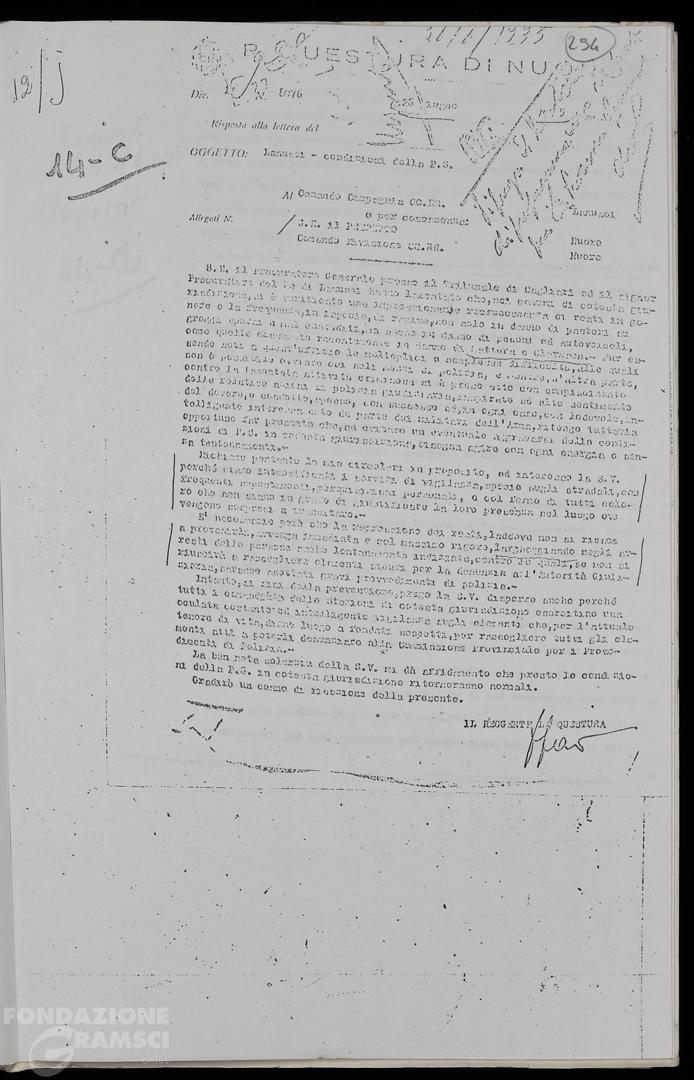 26/6/1935
294
12/J
R. QUESTURA DI NUORO
Div. N. 8076
26 giugno
14-C
Risposta alla lettera del
OGGETTO: Lanusei - condizioni della P.S.
Al Comando Compagnia CC.RR. Lanusei
e per conoscenza:
Allegati N. / S.E. il PREFETTO Nuoro
Comando Divisione CC.RR. Nuoro
S.E. il Procuratore Generale presso il Tribunale di Cagliari ed il signor
Procuratore del Re di Lanusei hanno lamentato che, nei comuni di cotesta giu-
risdizione, si è verificato una impressionante recrudescenza di reati in ge-
nere e la frequenza, in ispecie, di rapine, non solo in danno di pastori au
greggi sparsi e mal custoditi, ma anche in danno di pedoni ed autoveicoli,
come quelle consumate recentemente in danno di
sendo noti a quest'ufficio le molteplici e complesse difficoltà, alle quali
non è possibile ovviare coi soli mezzi di polizia, e mentre, d'altra parte,
contro la lamentata attività criminosa si è preso atto con compiacimento
delle relative azioni di polizia giudiziaria, inspirate ad alto sentimento
del dovere, e condotte, spesso, con successo ed, in ogni caso, con lodevole, in-
telligente interessamento da parte dei militari dell'Arma, ritengo tuttavia
opportuno far presente che, ad evitare un eventuale aggravarsi delle condi-
zioni di P.S. in cotesta giurisdizione, bisogna agire con ogni energia e sen-
za tentennamenti.-
Richiamo pertanto le mie circolari in proposito, ed interesso la S.V.
perché siano intensificati i servizi di vigilanza, specie sugli stradali, con
frequenti appostamenti, perquisizioni personali, e col fermo di tutti colo-
ro che non siano in grado di giustificare la loro presenza nel luogo ove
vengono sorpresi a transitare.-
E' necessario però che la repressione dei reati, laddove non si riesca
a prevenirla, avvenga immediata e col massimo rigore, largheggiando negli ar-
resti delle persone anche lontanamente indiziate, contro le quali, se non si
riuscirà a raccogliere elementi idonei per la denunzia all'Autorità Giudi-
ziaria, saranno adottati gravi provvedimenti di polizia.-
Intanto, ai fini della prevenzione, prego la S.V. disporre anche perché
tutti i comandanti delle Stazioni di cotesta giurisdizione esercitino una
oculata costante ed intelligente vigilanza sugli elementi che, per l'attuale
tenore di vita, diano luogo a fondati sospetti, per raccogliere tutti gli ele-
menti atti a poterli denunziare alla Commissione Provinciale per i Provve-
dimenti di Polizia.-
La ben nota solerzia della S.V. mi dà affidamento che presto le condizio-
ni della P.S. in cotesta giurisdizione ritorneranno normali.
Gradirò un cenno di ricezione della presente.
IL REGGENTE LA QUESTURA
FONDAZIONE
GRAMSCI
onlus